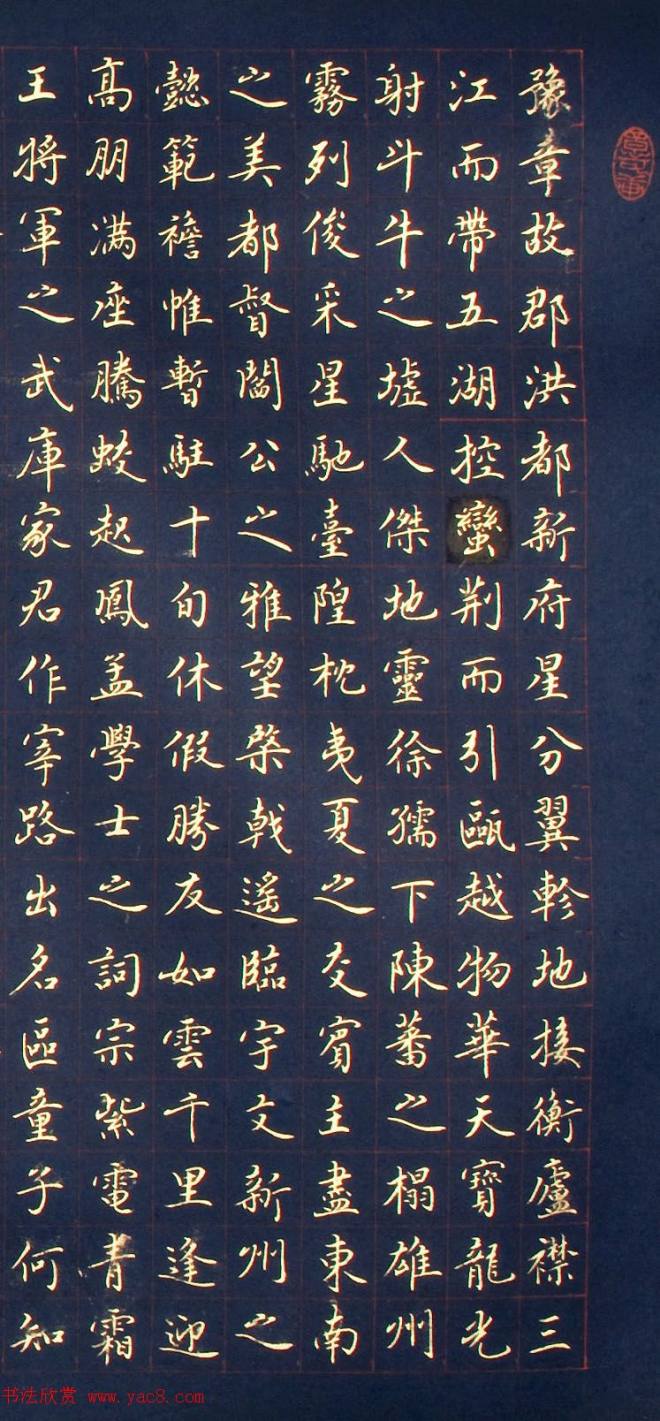 豫章故郡洪都新府星分翼軫地接衡廬襟三
江而帶五湖控蠻荆而引甌越物華天寶龍光
射斗牛之墟人傑地靈徐孺下陳蕃之榻雄州
霧列俊采星馳臺隍枕夷夏之交賓主盡東南
之美都督閻公之雅望棨戟遥臨宇文新州之
懿範襜帷暫駐十旬休假勝友如雲千里逢迎
高朋滿座騰蛟起鳳孟學士之詞宗紫電青霜
王將軍之武庫家君作宰路出名區童子何知
书法欣赏 www.yac8.com